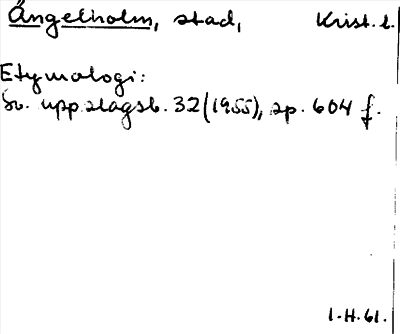 Ängelholm, stad, Krist. l.
Etymologi:
Sv. uppslagsb. 32 (1955), sp. 604 f.
1.H.61.